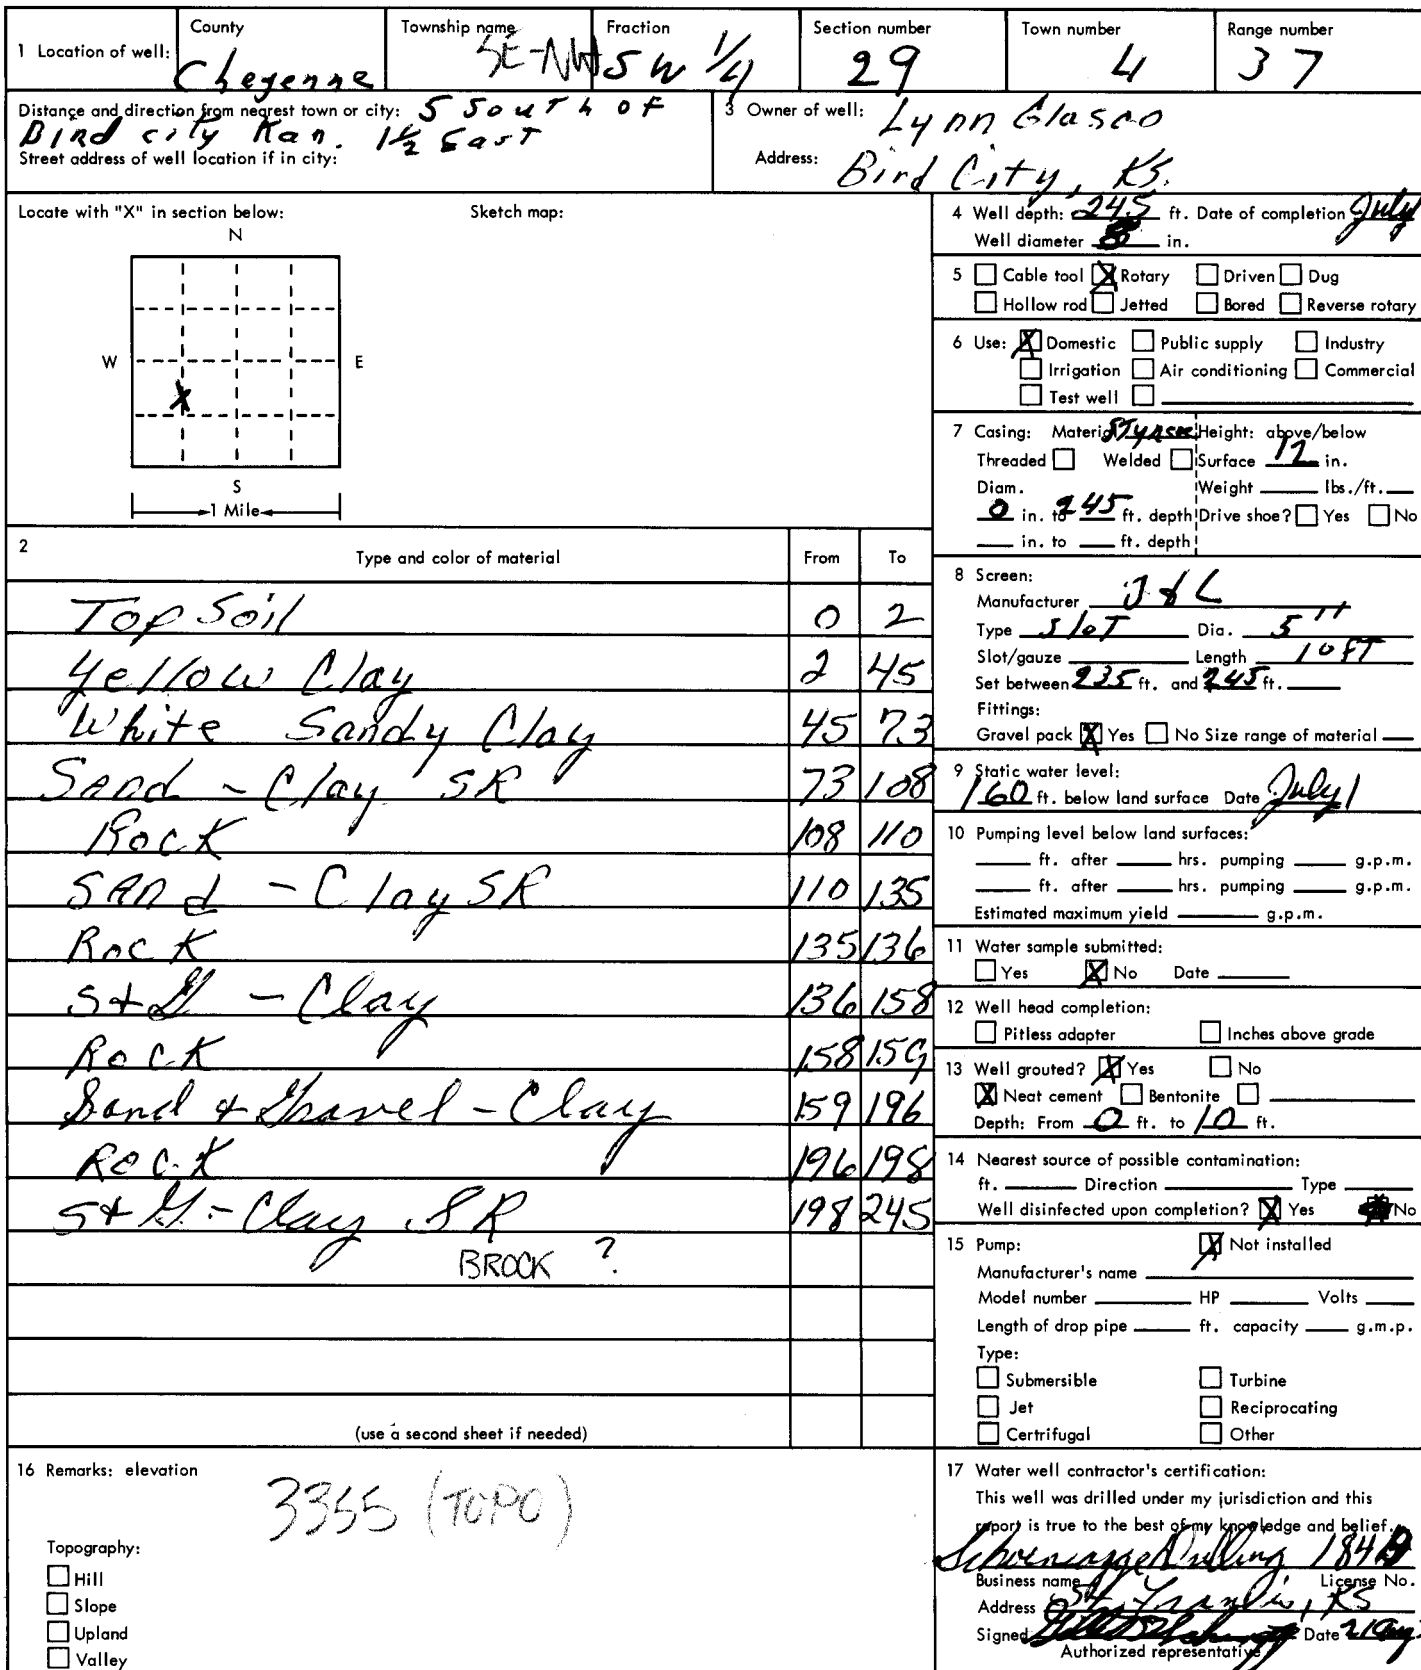 1 Location of well:
County
Cheyenne
Township name
Fraction
SE-NW SW 1/4
Section number
29
Town number
4
Range number
37
Distance and direction from nearest town or city: 5 South of
Bird city Kan. 1½ East
Street address of well location if in city:
3 Owner of well: Lynn Glasco
Address: Bird City, KS.
Locate with "X" in section below:
Sketch map:
N
W
E
X
S
1 Mile
4 Well depth: 245 ft. Date of completion July
Well diameter 8 in.
5 Cable tool X Rotary Driven Dug
Hollow rod Jetted Bored Reverse rotary
6 Use: X Domestic Public supply Industry
Irrigation Air conditioning Commercial
Test well
7 Casing: Material Height: above/below
Threaded Welded Surface 12 in.
Diam. Weight lbs./ft.
0 in. to 245 ft. depth Drive shoe? Yes No
in. to ft. depth
2
Type and color of material From To
Top Soil 0 2
Yellow Clay 2 45
White Sandy Clay 45 73
Sand - Clay SR 73 108
Rock 108 110
Sand - Clay SR 110 135
Rock 135 136
S+G - Clay 136 158
Rock 158 159
Sand & Gravel - Clay 159 196
Rock 196 198
S+G - Clay SR 198 245
BROCK ?
(use a second sheet if needed)
8 Screen:
Manufacturer J & L
Type Slot Dia. 5"
Slot/gauze Length 10 FT
Set between 235 ft. and 245 ft.
Fittings:
Gravel pack X Yes No Size range of material
9 Static water level:
160 ft. below land surface Date July 1
10 Pumping level below land surfaces:
ft. after hrs. pumping g.p.m.
ft. after hrs. pumping g.p.m.
Estimated maximum yield g.p.m.
11 Water sample submitted:
Yes X No Date
12 Well head completion:
Pitless adapter Inches above grade
13 Well grouted? X Yes No
X Neat cement Bentonite
Depth: From 0 ft. to 10 ft.
14 Nearest source of possible contamination:
ft. Direction Type
Well disinfected upon completion? X Yes No
15 Pump: X Not installed
Manufacturer's name
Model number HP Volts
Length of drop pipe ft. capacity g.m.p.
Type:
Submersible Turbine
Jet Reciprocating
Certrifugal Other
16 Remarks: elevation
3355 (TOPO)
Topography:
Hill
Slope
Upland
Valley
17 Water well contractor's certification:
This well was drilled under my jurisdiction and this
report is true to the best of my knowledge and belief.
Drilling 184
Business name License No.
Address St. Francis, KS
Signed Date 21 Aug
Authorized representative